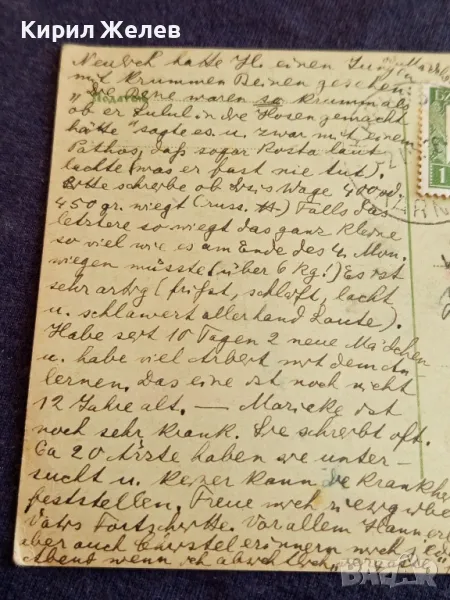 Кирил Желев
Neulich hatte H. einen Jungen
mit krummen Beinen gesehen
"Die Beine waren so krumm als
ob er Lulul in die Hosen gemacht
hätte" sagte es u. zwar mit einem
Pathos, daß sogar Rosta laut
lachte (was er fast nie tut).
Bitte schreibe ob Wage 400 od.
450 gr. wiegt (russ. ) Falls das
letztere so wiegt das ganz kleine
so viel wie es am Ende des 4. Mon.
wiegen müsste (über 6 kg!) Es ist
sehr artig (frißt, schläft, lacht
u. schlawert allerhand Laute).
Habe seit 10 Tagen 2 neue Mädchen
u. habe viel Arbeit mit dem An-
lernen. Das eine ist noch nicht
12 Jahre alt. — Marieke ist
noch sehr krank. Sie schreibt oft.
Ca 20 Ärzte haben sie unter-
sucht u. keiner kann die Krankh
feststellen. Freue mich riesig über
Vaters Fortschritte. Vor allem Hannerl
aber auch Christel erinnern mich
Abend wenn ich
1
bazar.bg